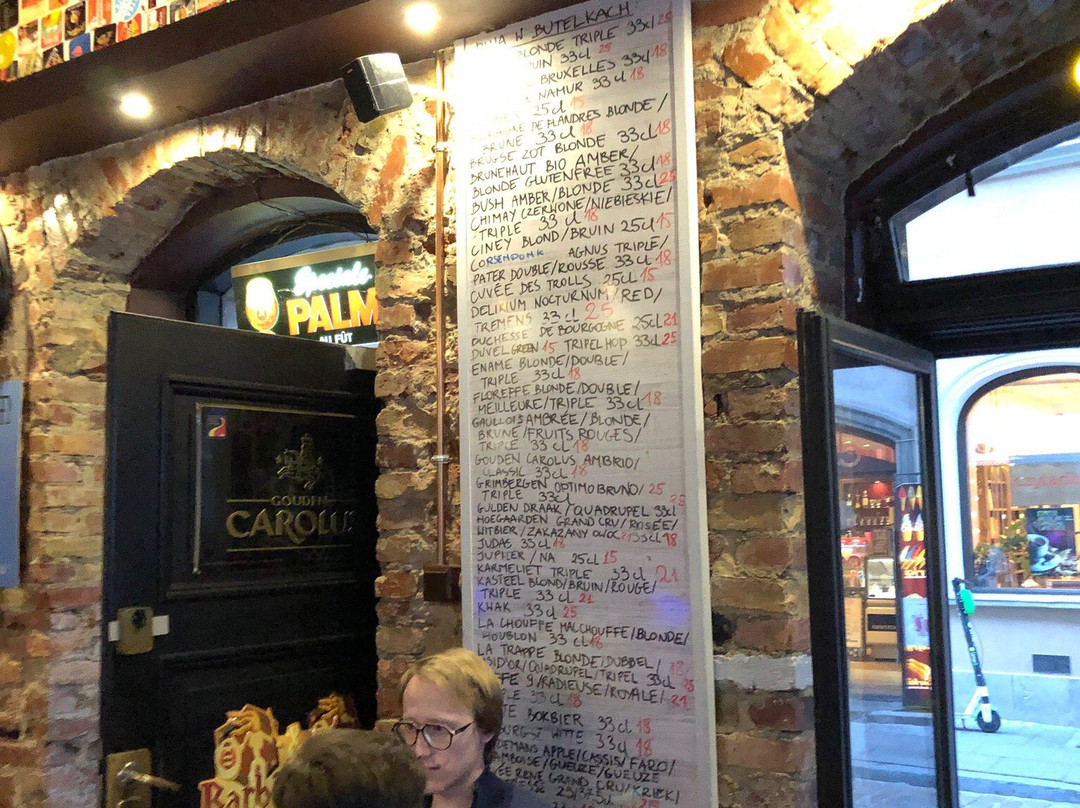 PIWA W BUTELKACH
BLONDE TRIPLE 33cl 25
33cl 25
BRUXELLES 33cl 18
NAMUR 33 cl 18
25cl 15
DE FLANDRES BLONDE/
BRUNE 33 cl 18
BRUGSE ZOT BLONDE 33cl 18
BRUNEHAUT BIO AMBER/
BLONDE GLUTENFREE 33cl 18
BUSH AMBER/BLONDE 33cl 25
CHIMAY CZERWONE/NIEBIESKIE/
TRIPLE 33 cl 18
CINEY BLOND/BRUIN 25cl 15
CORSENDONK AGNUS TRIPLE/
PATER DOUBLE/ROUSSE 33 cl 18
CUVÉE DES TROLLS 25cl 15
DELIRIUM NOCTURNUM/RED/
TREMENS 33 cl 25
DUCHESSE DE BOURGOGNE 25cl 21
DUVEL GREEN 15 TRIPEL HOP 33cl 25
ENAME BLONDE/DOUBLE/
TRIPLE 33cl 18
FLOREFFE BLONDE/DOUBLE/
MEILLEURE/TRIPLE 33 cl 18
GAULLOIS AMBRÉE/BLONDE/
BRUNE/FRUITS ROUGES/
TRIPLE 33 cl 18
GOUDEN CAROLUS AMBRIO/
CLASSIC 33 cl 18
GRIMBERGEN OPTIMO BRUNO/ 25
TRIPLE 33cl 25
GULDEN DRAAK/QUADRUPEL 33cl
HOEGAARDEN GRAND CRU/ROSÉE/
WITBIER/ZAKAZANY OWOC 33cl 18
JUDAS 33 cl 18
JUPILER/NA 25cl 15
KARMELIET TRIPLE 33 cl 21
KASTEEL BLOND/BRUIN/ROUGE/
TRIPLE 33 cl 21
KWAK 33 cl 25
LA CHOUFFE MALCHOUFFE/BLONDE/
HOUBLON 33 cl 18
LA TRAPPE BLONDE/DUBBEL/ 18
ISID'OR/QUADRUPEL/TRIPEL 33cl 25
9/RADIEUSE/ROYALE/ 21
33 cl 18
BOKBIER 33 cl 18
WITTE 33 cl 18
APPLE/CASSIS/FARO/
FRAMBOISE/GUEUZE/GUEUZE
RENÉ GRAND CRU/KRIEK/
25
Speciale
PALM
AU FÛT
GOUDEN
CAROLUS
Barb